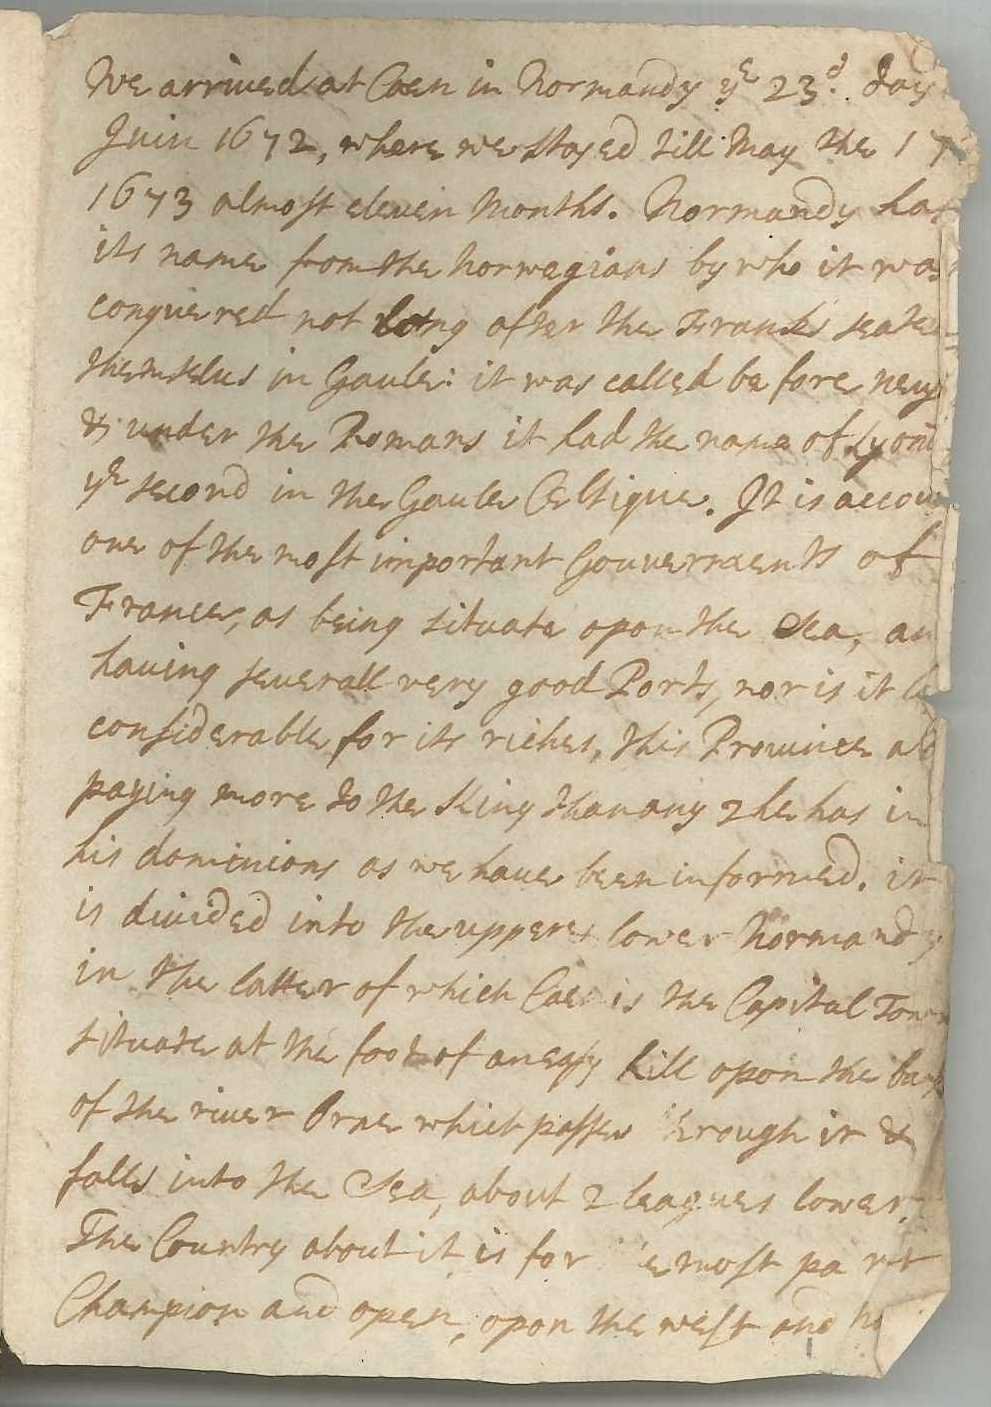 We arrived at Caen in Normandy ye 23d. day
Juin 1672, where we stayed till May the 17
1673 almost eleven Months. Normandy has
its name from the Norwegians by who it was
conquered not long after the Franks seate
themselus in Gaule: it was called before
& under the Romans it had the name of
ye second in the Gaule Celtique. It is accou
one of the most important Gouvernments of
France, as being situate opon the Sea, an
having severall very good Ports, nor is it le
considerable for its riches, this Province al
paying more to the King than any 2 he has in
his dominions as we have been informed. it
is divided into the upper & lower Normandy
in the latter of which Caen is the Capital Town
situate at the foot of an easy hill opon the bank
of the river Orne which passes through it &
falls into the Sea, about 2 leagues lower.
The Country about it is for e most part
Champion and open, opon the west and